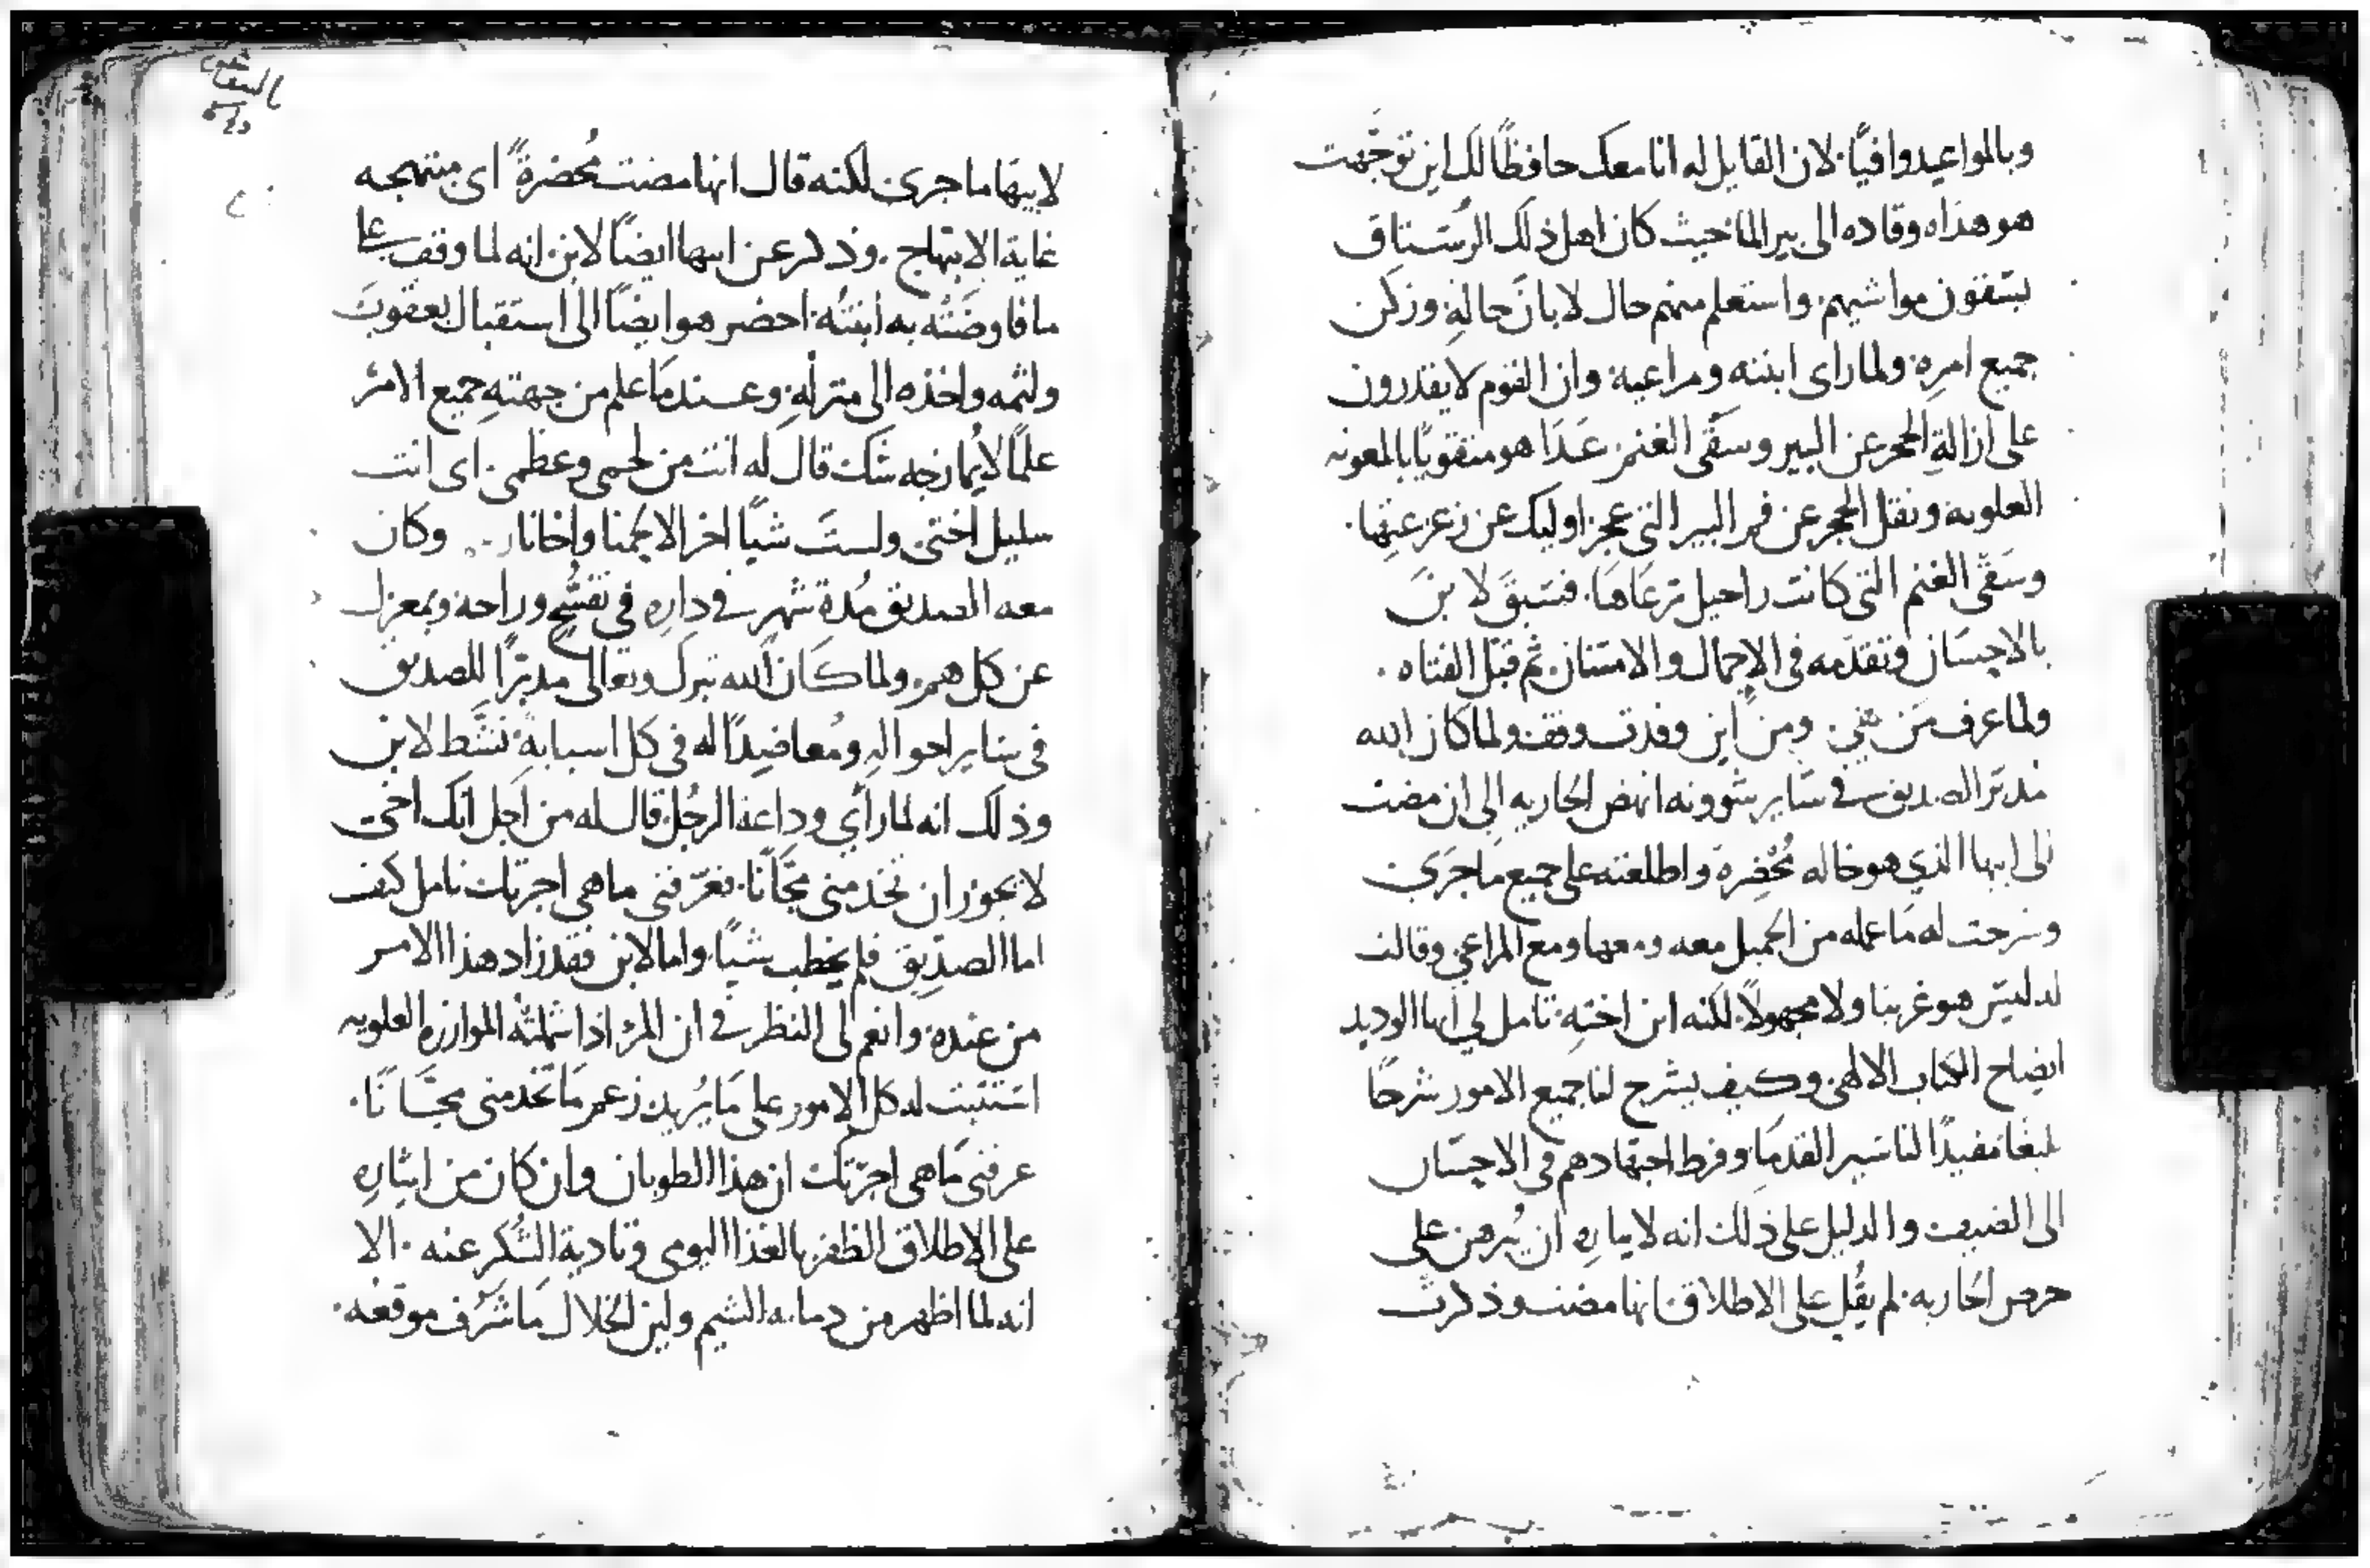 وبالمواعيد وافيًا. لان القايل له انا معك حافظًا لك اين توجهت
هو هداه وقاده الى بير الما حيث كان اهل ذلك الرستاق
يسقون مواشيهم. واستعلم منهم حال لابان خاله. وزكن
جميع امره. ولما راى ابنته ومراعيه وان القوم لا يقدرون
على ازالة الحجر عن البير وسقى الغنم. عدا هو متقويًا بالمعونه
العلويه ونقل الحجر عن فم البير التى عجز اوليك عن زعزعتها.
وسقى الغنم التى كانت راحيل ترعاها. فسبق لابن
بالاحسان وتقدمه فى الاجمال والامتنان. ثم قبل الفتاه.
ولما عرف من هي. ومن اين وفدت وقف ولما كان الله
مدبر الصديق في ساير شوونه انهض الجاريه الى ان مضت
الى ابيها الذي هو خاله مُحْضِرة واطلعته على جميع ما جرى
وشرحت له ما عمله من الجميل معه ومعها ومع المراعي وقالت
له ليس هو غريبا ولا مجهولاً. لكنه ابن اخته. تامل لي ايها الوديد
ايضاح الكتاب الالهى وكيف يشرح لنا جميع الامور شرحًا
بليغا مفيدًا لنا سير القدما وفرط اجتهادهم فى الاحسان
الى الضيف والدليل على ذلك انه لايثاره ان يُبرهن على
حرص الجاريه. لم يقُل على الاطلاق انها مضت وذكرت
لابيها ما جرى. لكنه قال انها مضت مُحضرةً اى مبتهجه
غاية الابتهاج. وذكر عن ابيها ايضًا لابن انه لما وقف على
ما فاوضَتْه به ابنتُه. احضر هو ايضًا الى استقبال يعقوب
ولثمه واخذه الى منزله. وعندما علم من جهته جميع الامر
علمًا لا يُمازجه شك قال له انت من لحمى وعظمى. اى انت
سليل اختى ولست شيًا اخر الا بمنا واخانا. وكان
معه الصديق مُدة شهر في داره فى تفسُّح وراحه وبمعزل
عن كل هم. ولما كان الله تبرك وتعالى مدبرًا للصديق
فى ساير احواله ومُعاضِدًا له فى كل اسبابه. نشَّط لابن
وذلك انه لما رأي وداعة الرجل قال له من اجل انك اخى
لا يجوز ان تخدمنى مجَّانًا. فعرّفنى ما هى اجرتك. تامل كيف
اما الصدِيق فلم يخطب شيًا. واما لابن فقد زاد هذا الامر
من عنده. وانعم لى النظر في ان المرُ اذا شملتْه الموازره العلويه
استتبت له كل الامور على ما يُريد. زعم ما تخدمنى مجَّانًا.
عرفنى ما هى اجرتك. ان هذا الطوبان وان كان من ايثاره
على الاطلاق الظفر بالغذا اليومى وتادية الشكر عنه. الا
انه لما اظهر من دماثه الشيم ولين الخلال ما شَرُف موقعه.